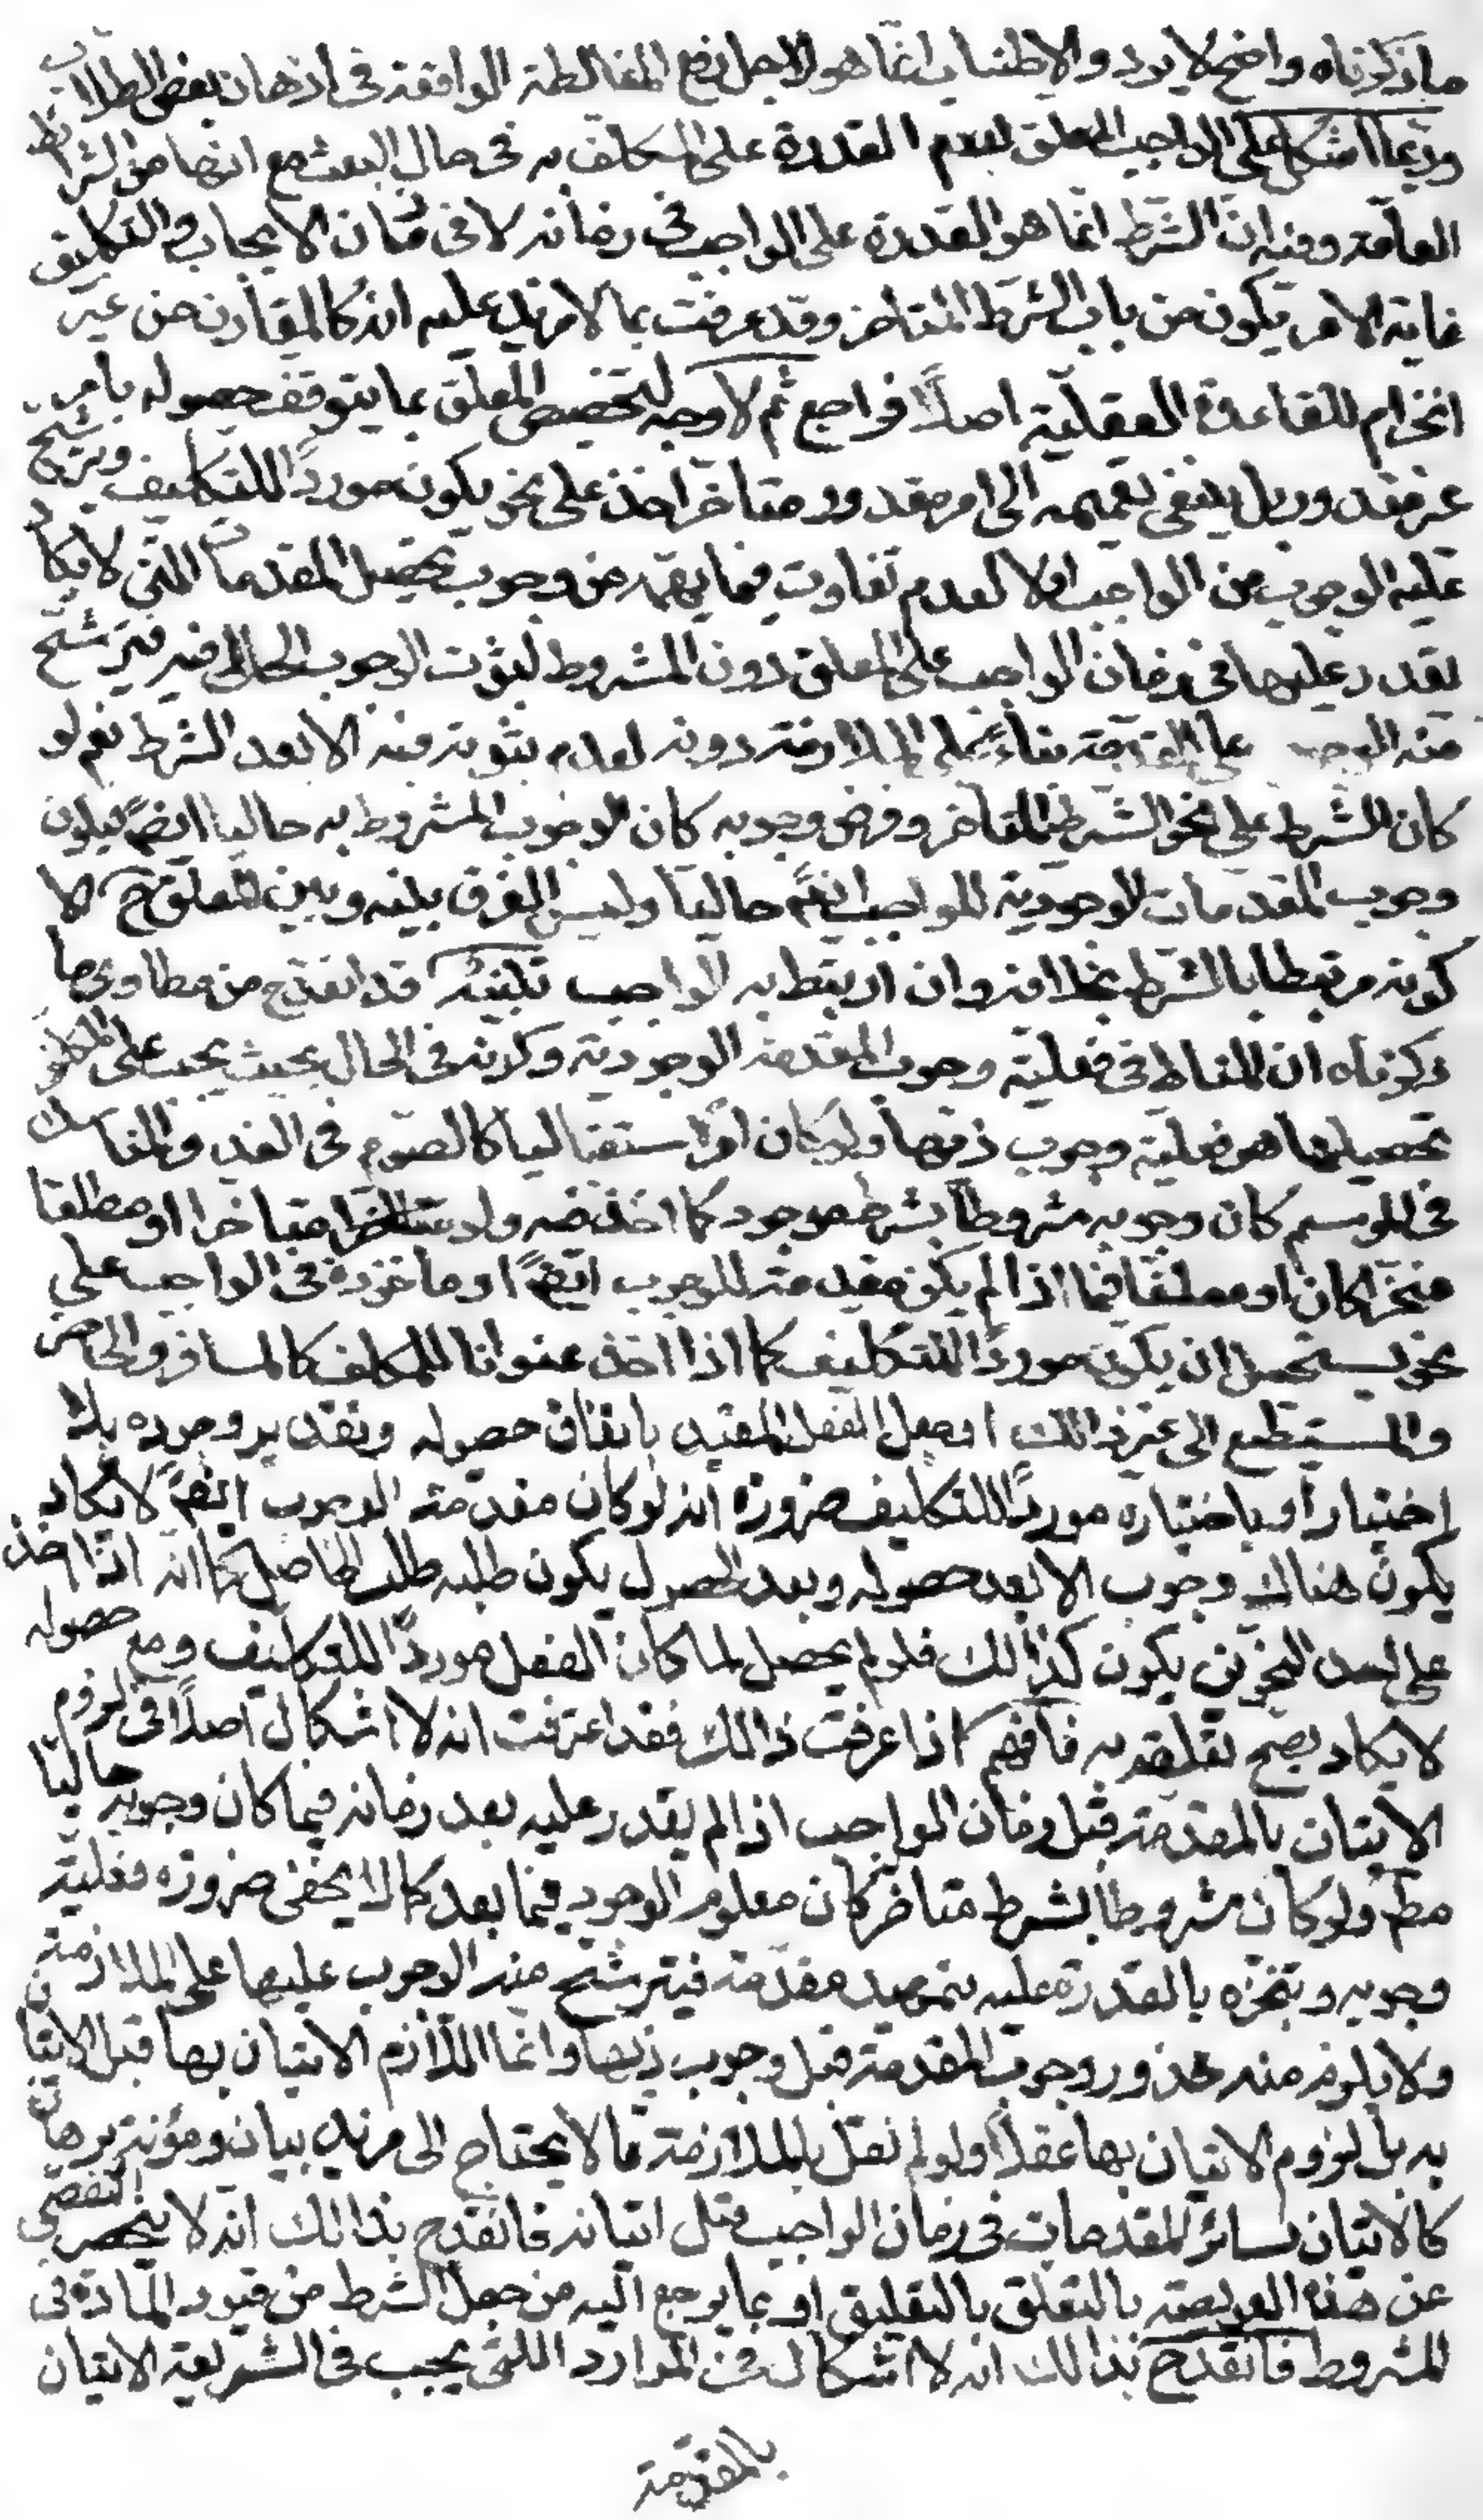 ما ذكرناه واضح لا يرد والاطناب انما هو لاجل رفع المغالطة الواقعة فى اذهان بعض الطلاب
وربما اشكل على الواجب المعلق بعدم القدرة على المكلف به فى حال البعث مع انها من الشرائط
العامة وفيه ان الشرط انما هو القدرة على الواجب فى زمانه لا فى زمان الايجاب والتكليف
غاية الامر يكون من باب الشرط المتاخر وقد عرفت بما لا مزيد عليه انه كالمقارن من غير
انخرام للقاعدة العقلية اصلاً فراجع ثم لا وجه لتخصيص المعلق بما يتوقف حصوله بامر
غير مقدور بل ينبغى تعميمه الى امر مقدور متاخر اخذ على نحو يكون مورداً للتكليف ويترشح
عليه الوجوب من الواجب اولا لعدم تفاوت فيما يهمه من وجوب تحصيل المقدمات التى لا يكاد
يقدر عليها فى زمان الواجب على المعلق دون المشروط لثبوت الوجوب الحالى فيه فيترشح
منه الوجوب على المقدمة بناءً على الملازمة دونه لعدم ثبوته فيه الا بعد الشرط نعم لو
كان الشرط على نحو الشرط المتاخر وفرض وجوده كان الوجوب المشروط به حاليا ايضً فيكون
وجوب المقدمات الوجودية للواجب ايضً حاليا وليس الفرق بينه وبين المعلق ح الا
كونه مرتبطا بالشرط بخلافه وان ارتبط به الواجب تنبيه قد انقدح من مطاوى ما
ذكرناه ان المناط فى فعلية وجوب المقدمة الوجودية وكونه فى الحال بحيث يجب على المكلف
تحصيلها هو فعلية وجوب ذيها ولو كان امرا استقباليا كالصوم فى الغد والمناسك
فى الموسم كان وجوبه مشروطا بشرط موجود كما اخذ فيه ولو متاخرا او مطلقا
منجزا كان او معلقا فيما اذا لم يكن مقدمة للوجوب ايضً او ماخوذة فى الواجب على
نحو يستحيل ان يكون مورداً للتكليف كما اذا اخذ عنوانا للمكلف كالمسافر والحاضر
والمستطيع الى غير ذالك او جعل الفعل المقيد باتفاق حصوله وتقدير وجوده بلا
اختيار او باختياره مورداً للتكليف ضرورة انه لو كان مقدمة الوجوب ايضً لا يكاد
يكون هناك وجوب الا بعد حصوله وبعد الحصول يكون طلبه طلب الحاصل كما انه اذا اخذ
على احد النحوين يكون كذالك فلو لم يحصل لما كان الفعل مورداً للتكليف ومع حصوله
لا يكاد يصح تعلقه به فافهم اذا عرفت ذالك فقد عرفت انه لا اشكال اصلاً فى لزوم
الاتيان بالمقدمة قبل زمان الواجب اذا لم يقدر عليه بعد زمانه فيما كان وجوبه حاليا
مطً ولو كان مشروطا بشرط متاخر كان معلوم الوجود فيما بعد كما لا يخفى ضرورة فعلية
وجوبه وتنجزه بالقدرة عليه بتمهيد مقدمته فيترشح منه الوجوب عليها على الملازمة
ولا يلزم منه محذور وجوب المقدمة قبل وجوب ذيها وانما اللازم الاتيان بها قبل الاتيان
به بل لزوم الاتيان بها عقلاً ولو لم نقل بالملازمة ما لا يحتاج الى مزيد بيان ومؤنة برهان
كالاتيان بسائر المقدمات فى زمان الواجب قبل اتيانه فانقدح بذالك انه لا ينحصر التفصى
عن هذه العويصة بالتعلق بالتعليق او بما يرجع اليه من جعل الشرط من قيود المادة فى
المشروط فانقدح بذالك انه لا اشكال فى الموارد اللتى يجب فى الشريعة الاتيان
بالمقدمة